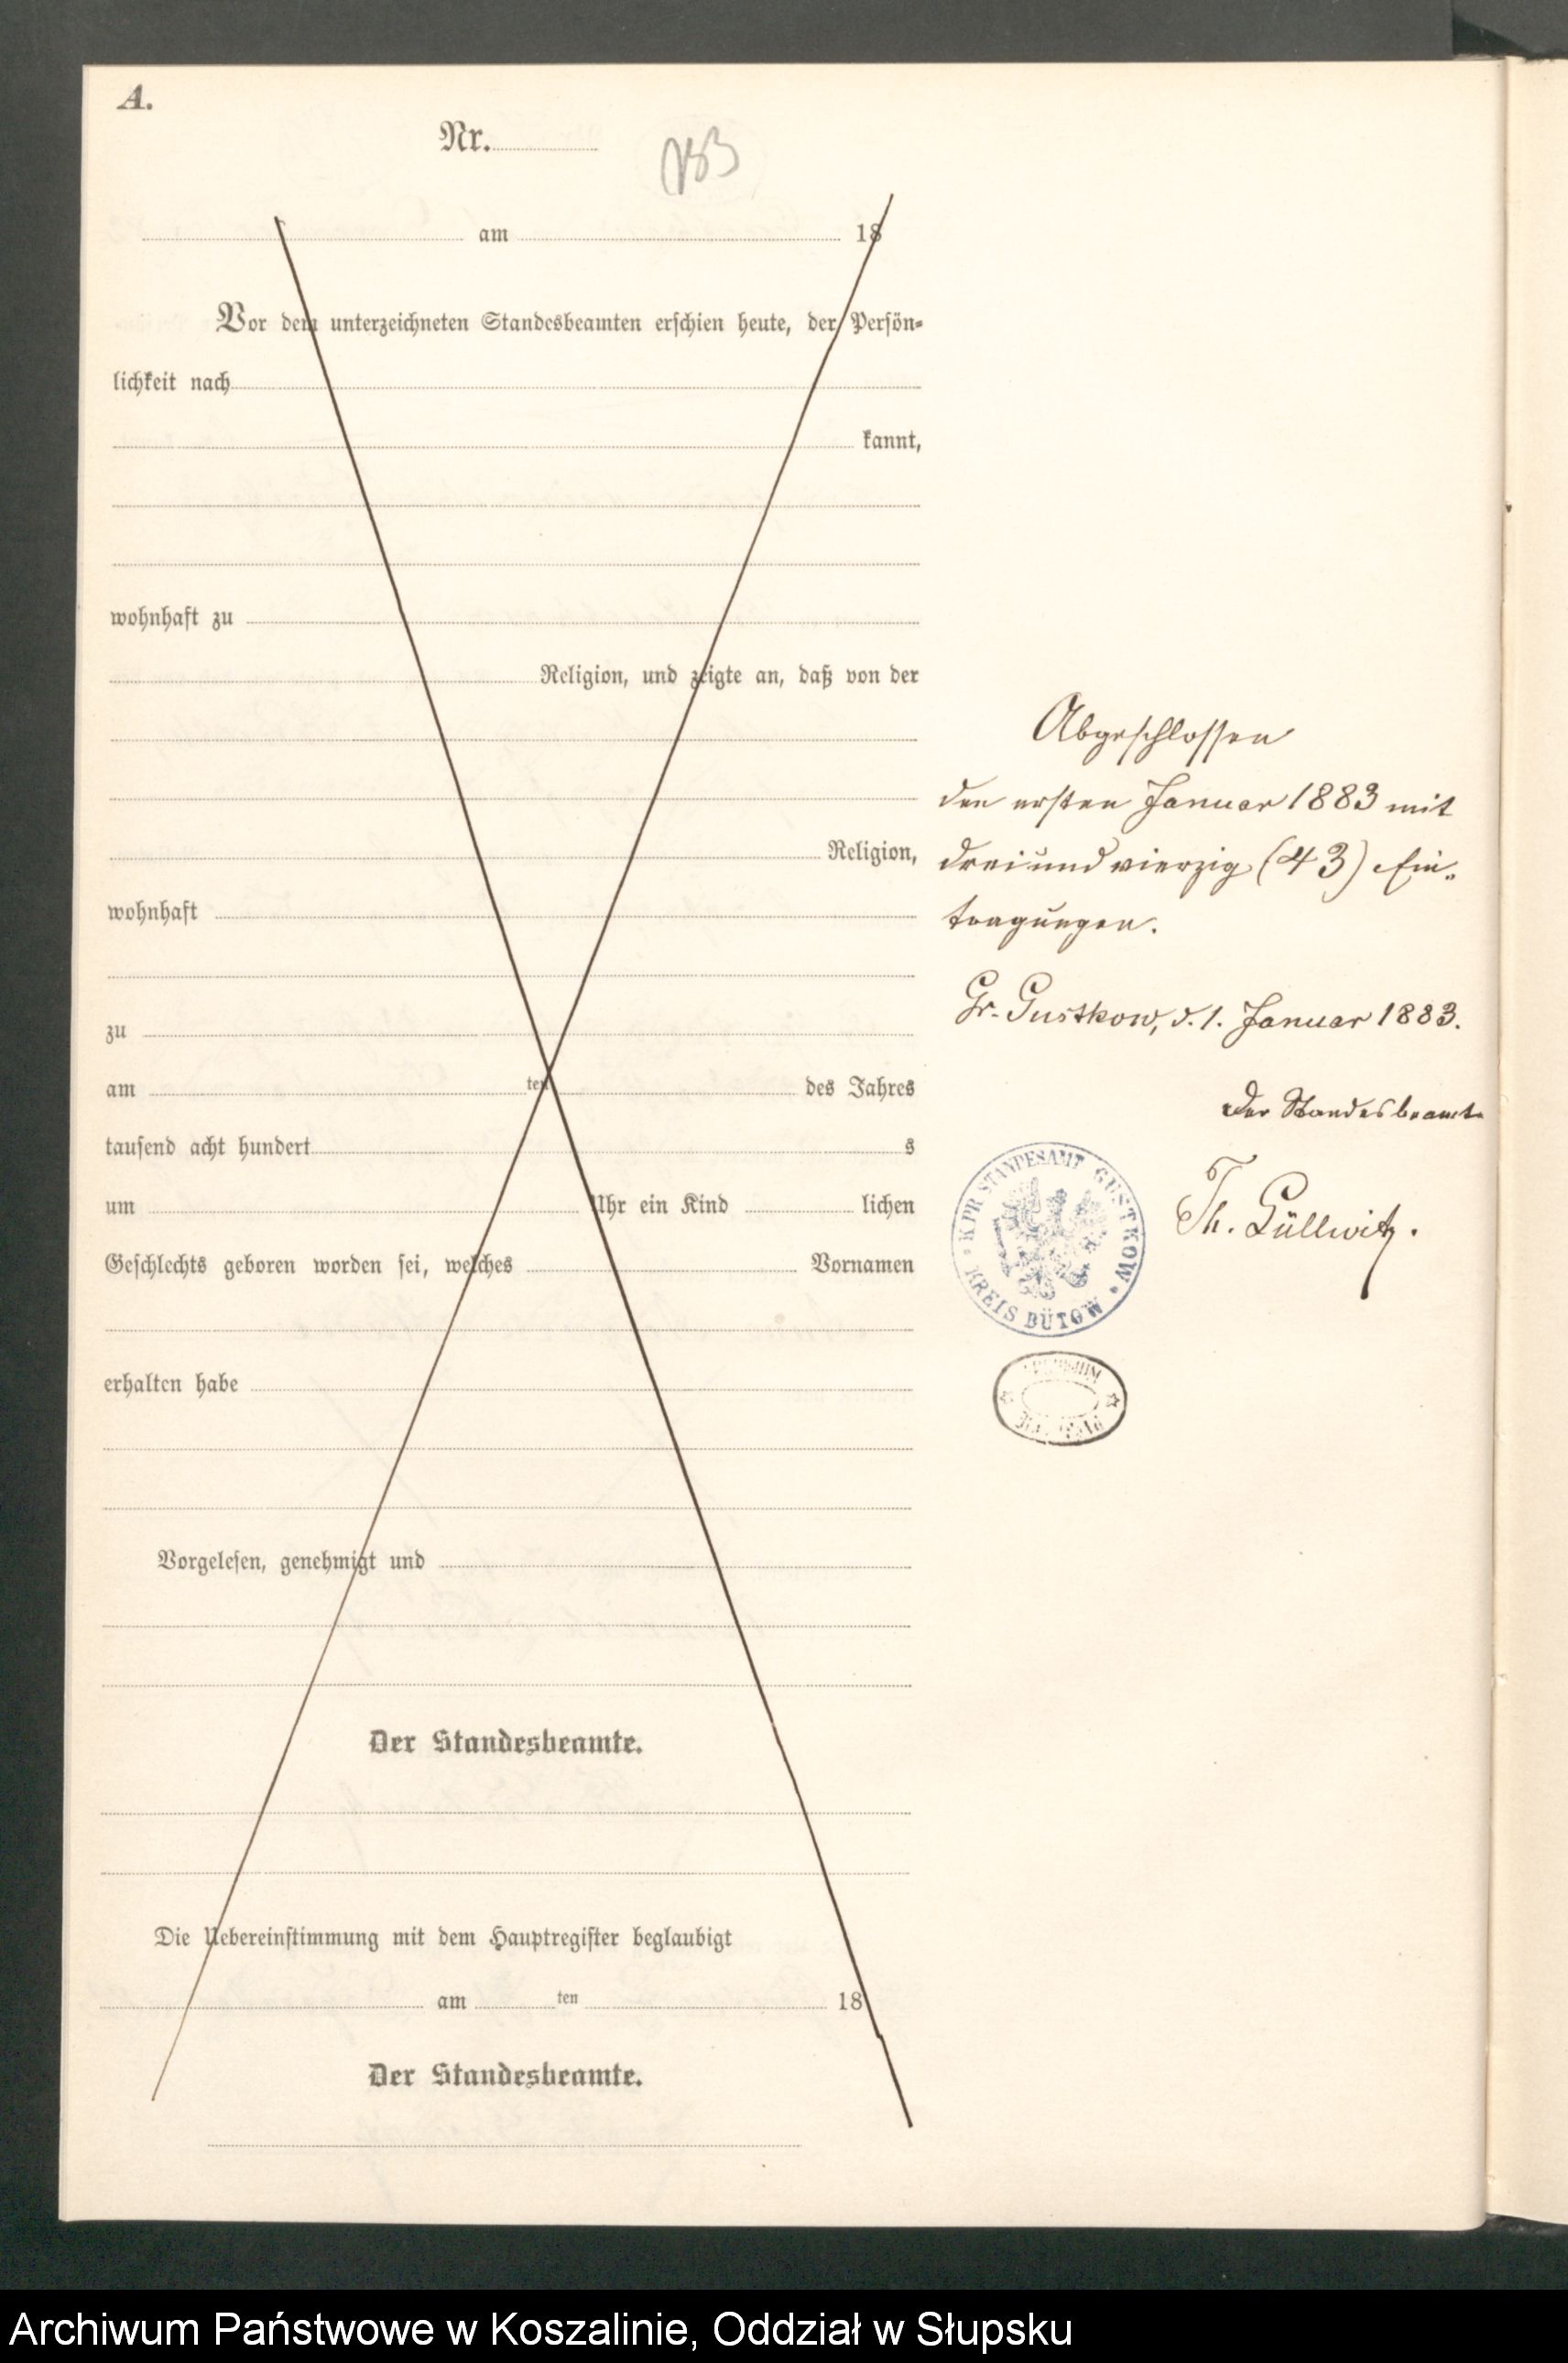 A.
Nr.
am 18
Vor dem unterzeichneten Standesbeamten erschien heute, der Persön-
lichkeit nach
kannt,
wohnhaft zu
Religion, und zeigte an, daß von der
Religion,
wohnhaft
zu
am ten des Jahres
tausend acht hundert s
um Uhr ein Kind lichen
Geschlechts geboren worden sei, welches Vornamen
erhalten habe
Vorgelesen, genehmigt und
Der Standesbeamte.
Die Uebereinstimmung mit dem Hauptregister beglaubigt
am ten 18
Der Standesbeamte.
Abgeschlossen
den ersten Januar 1883 mit
dreiundvierzig (43) Ein-
tragungen.
Gr. Gustkow, d. 1. Januar 1883.
Der Standesbeamte
Th. Güllwitz.
KPR STANDESAMT GUSTKOW
KREIS BÜTOW
Archiwum Państwowe w Koszalinie, Oddział w Słupsku